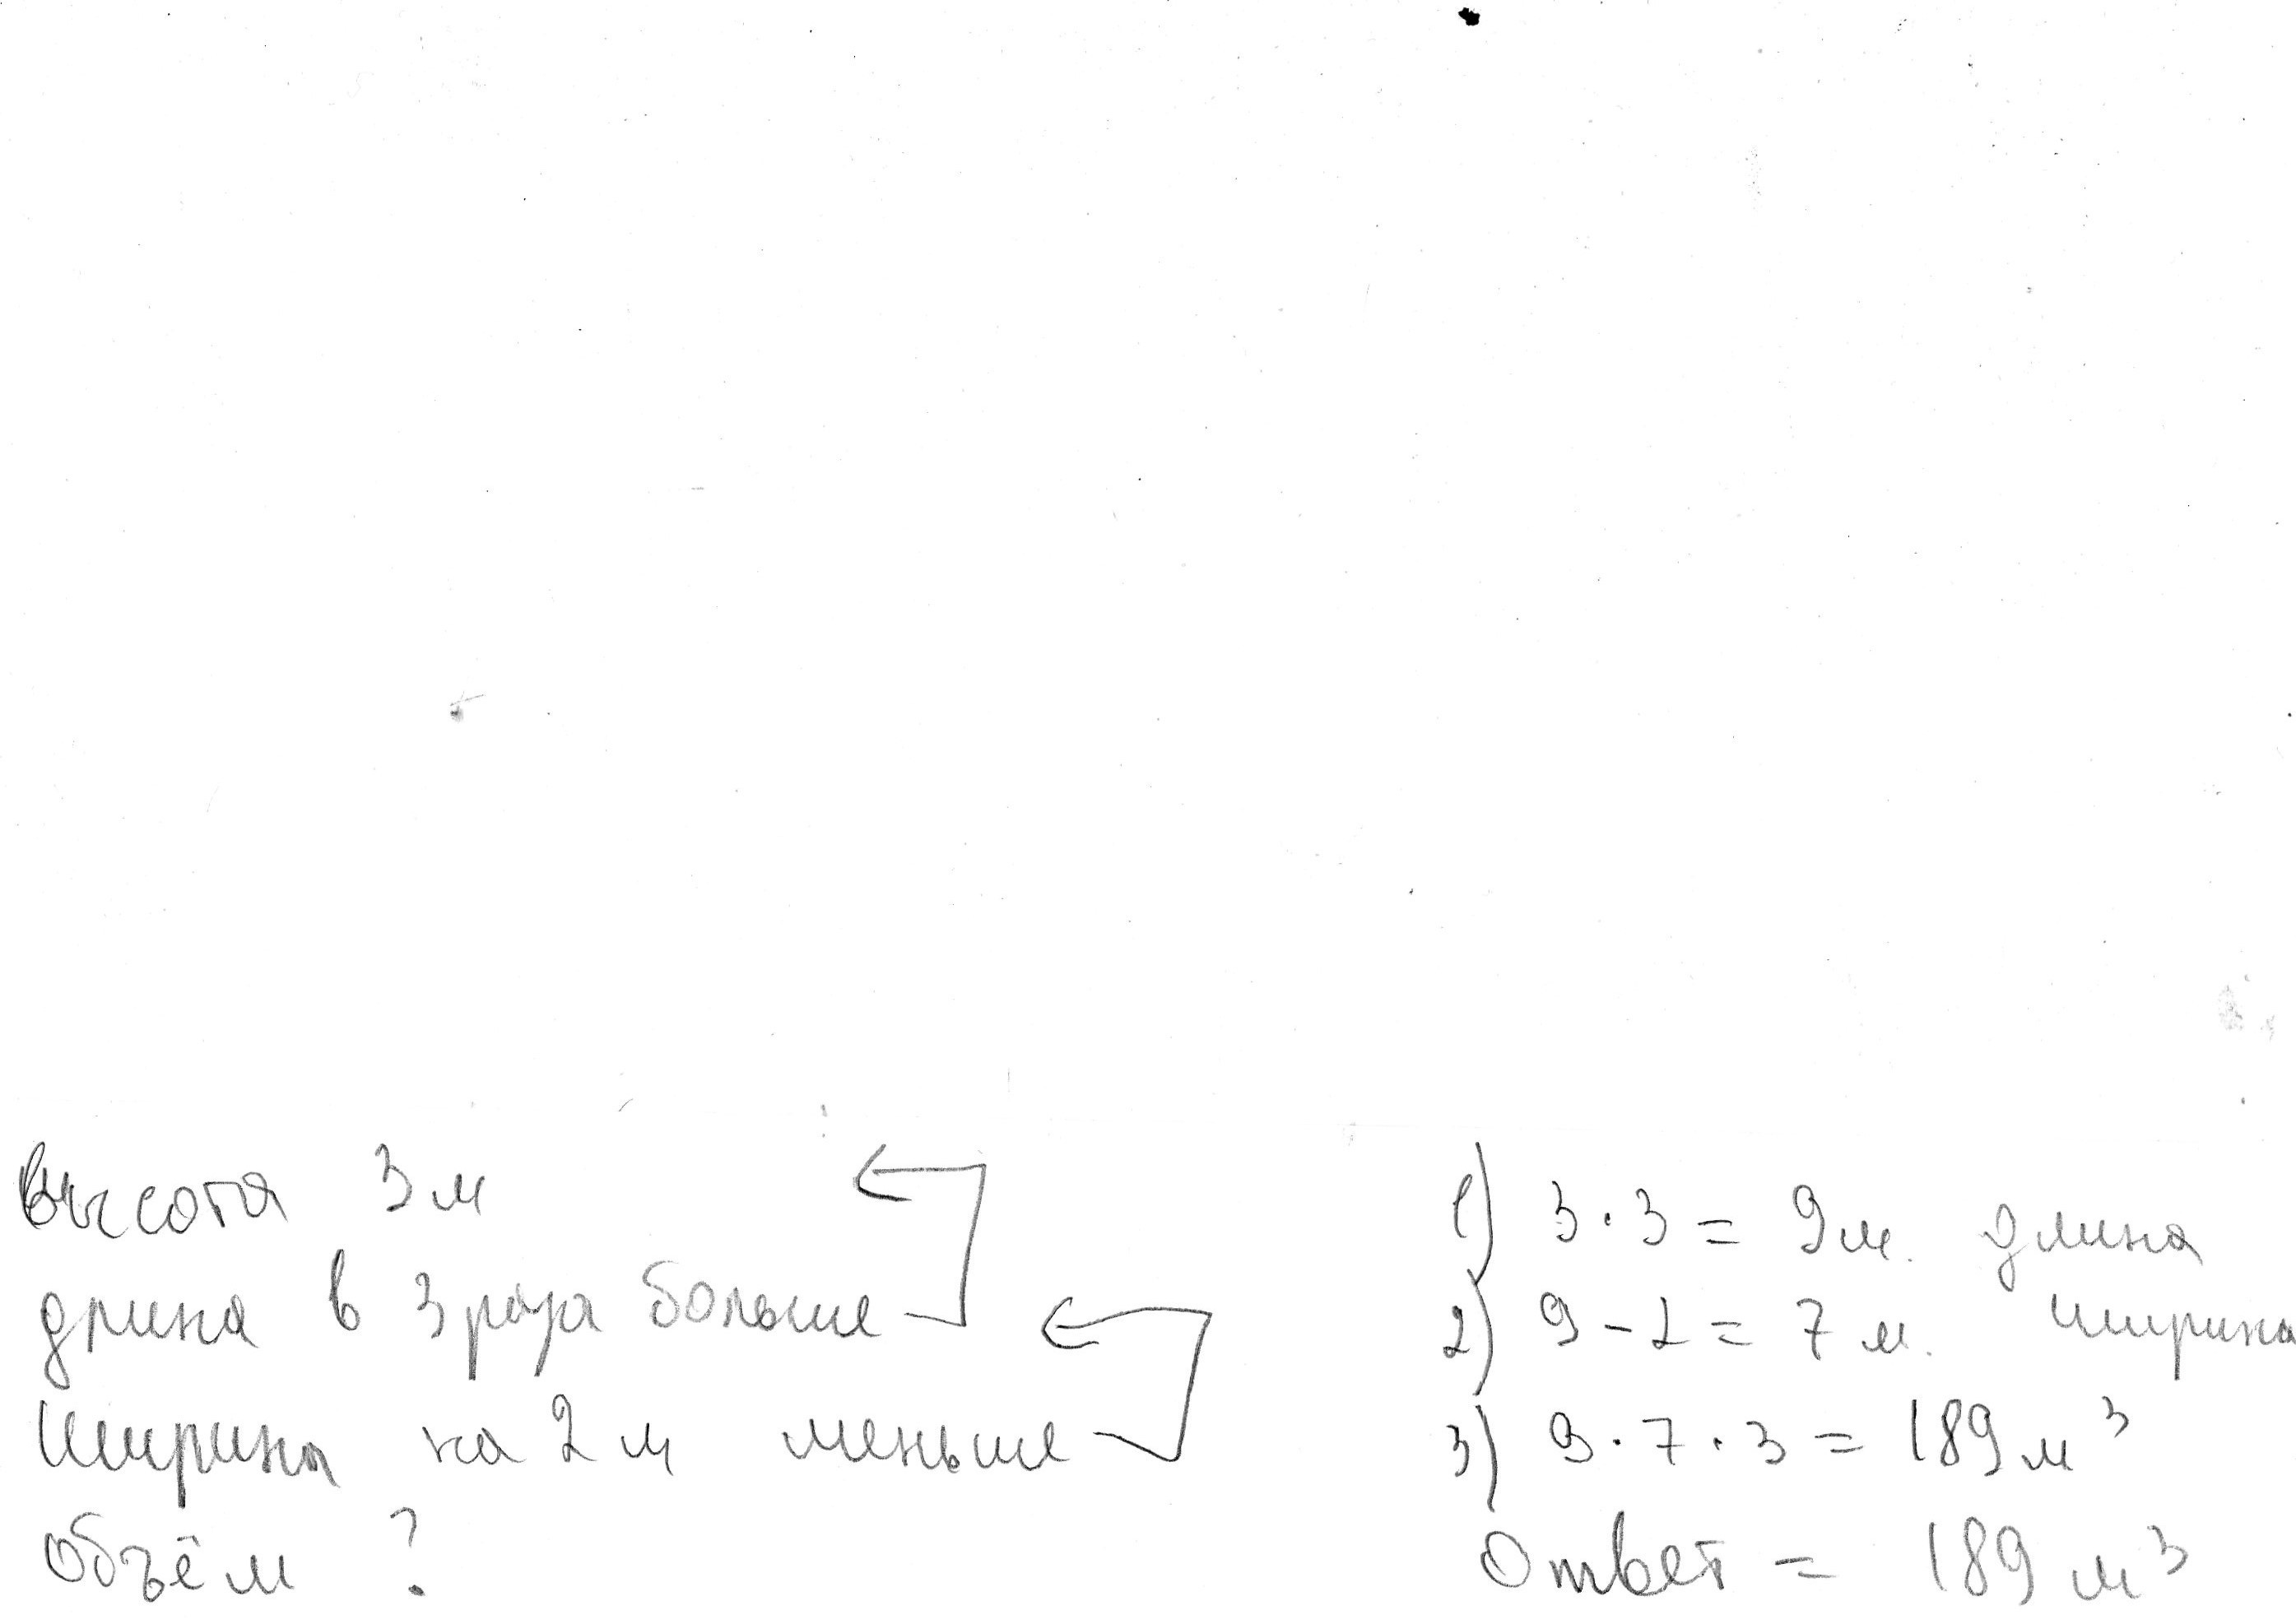 высота 3 м
длина в 3 раза больше
ширина на 2 м меньше
объём ?
1) 3 · 3 = 9 м. длина
2) 9 - 2 = 7 м. ширина
3) 9 · 7 · 3 = 189 м³
Ответ = 189 м³